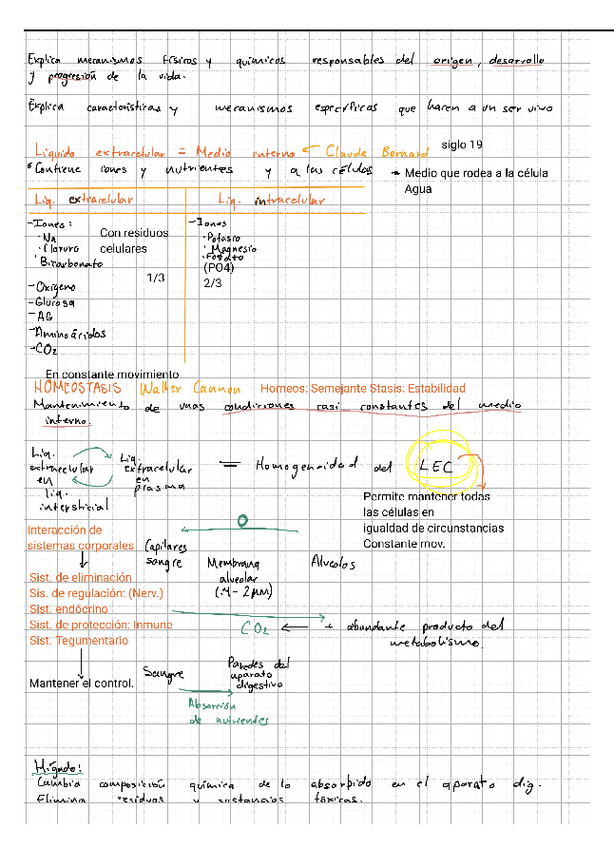 Explica mecanismos físicos y químicos responsables del origen, desarrollo
y progresión de la vida.
Explica características y mecanismos específicas que hacen a un ser vivo
Liquido extracelular = Medio interno ← Claude Bernard siglo 19
Contiene iones y nutrientes y a las células → Medio que rodea a la célula
Agua
Liq. extracelular
- Iones:
· Na
· Cloruro
· Bicarbonato
Con residuos
celulares
1/3
- Oxígeno
- Glucosa
- AG
- Aminoácidos
- CO2
Liq. intracelular
- Iones
· Potasio
· Magnesio
· Fosfato
(PO4)
2/3
En constante movimiento
HOMEOSTASIS Walter Cannon Homeos: Semejante Stasis: Estabilidad
Mantenimiento de unas condiciones casi constantes del medio
interno.
Liq.
extracelular
en
liq.
intersticial
Liq.
extracelular
en
plasma
= Homogenoidad del LEC
Permite mantener todas
las células en
igualdad de circunstancias
Constante mov.
Interacción de
sistemas corporales
Sist. de eliminación
Sis. de regulación: (Nerv.)
Sist. endócrino
Sist. de protección: Inmune
Sist. Tegumentario
Mantener el control.
O
Capilares
sangre
Membrana
alveolar
(.4 - 2 μm)
Alveolos
CO2 ← + abundante producto del
metabolismo.
Sangre
Paredes del
aparato
digestivo
Absorción
de nutrientes
Hígado:
Cambia composición química de lo absorbido en el aparato dig.
Elimina residuos y sustancias tóxicas.